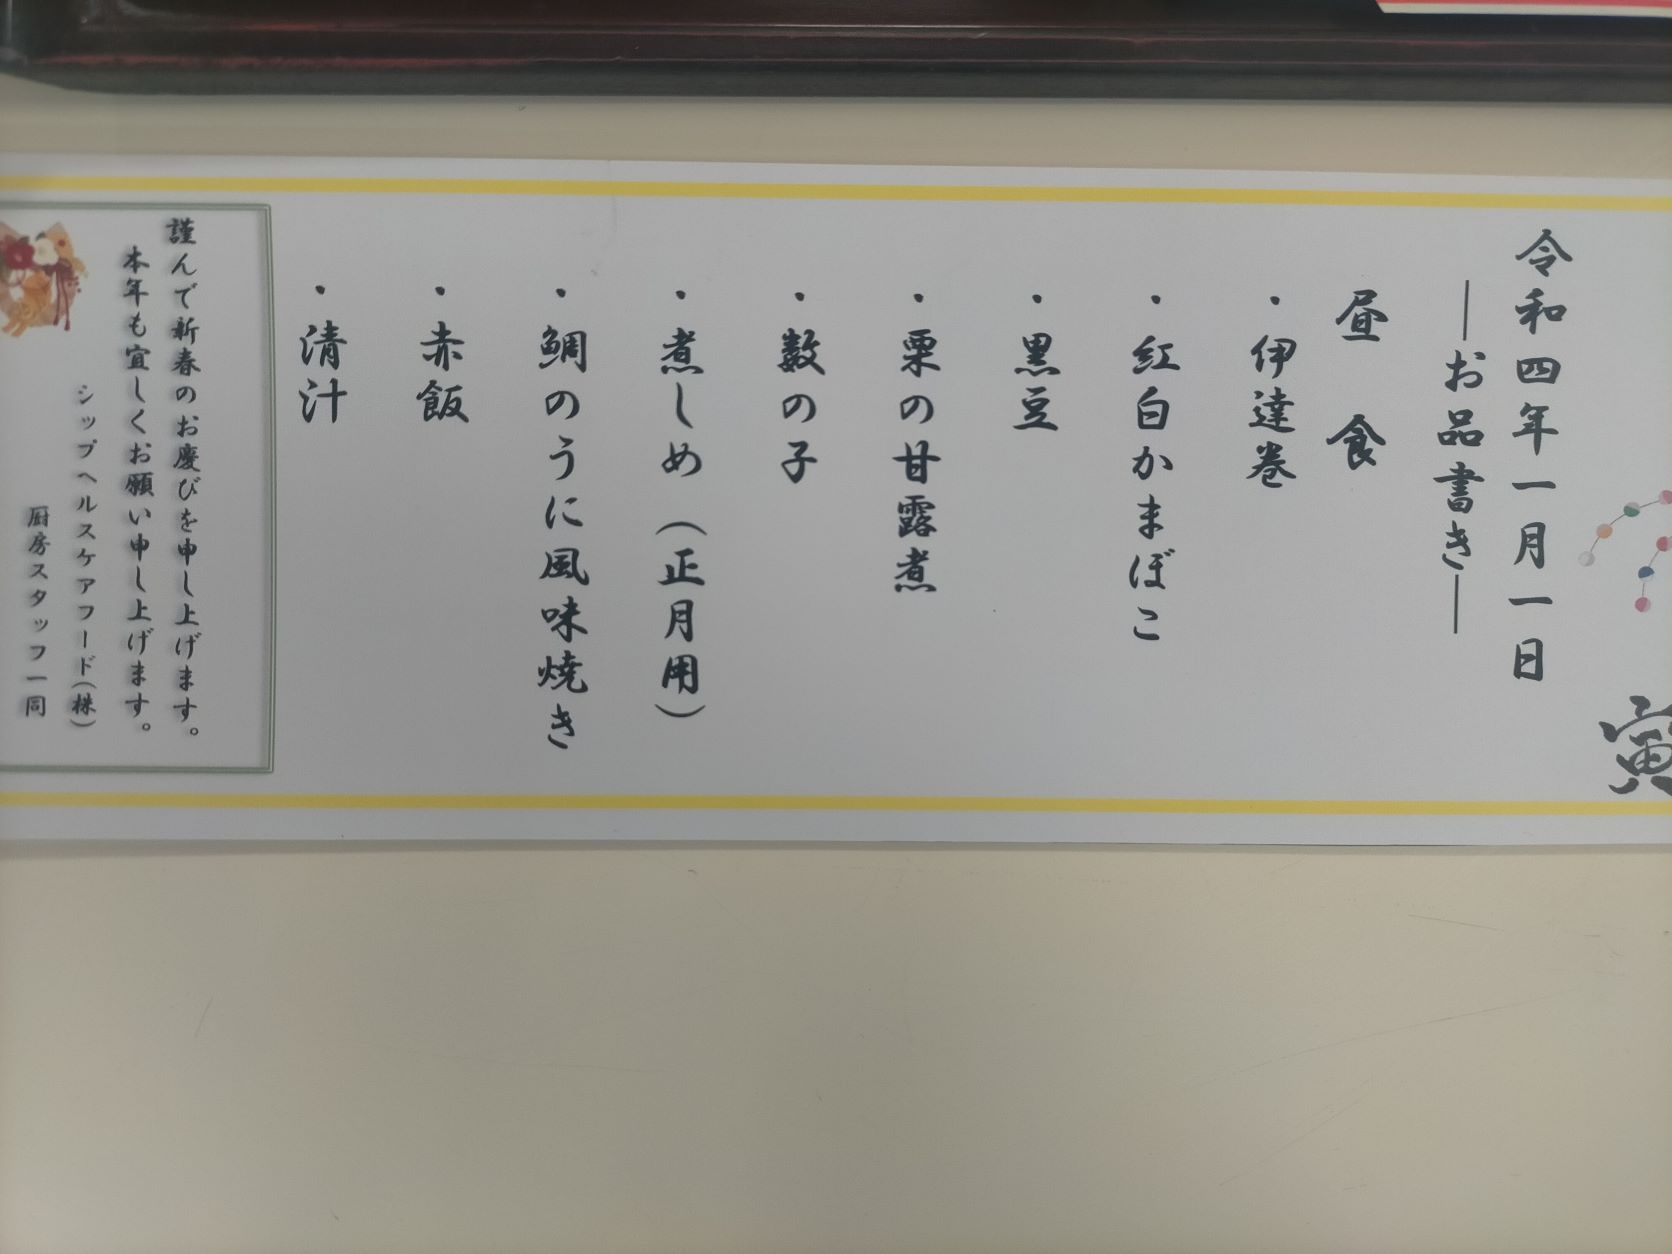 寅
令和四年一月一日
―お品書き―
昼 食
・伊達巻
・紅白かまぼこ
・黒豆
・栗の甘露煮
・数の子
・煮しめ（正月用）
・鯛のうに風味焼き
・赤飯
・清汁
謹んで新春のお慶びを申し上げます。
本年も宜しくお願い申し上げます。
シップヘルスケアフード(株)
厨房スタッフ一同